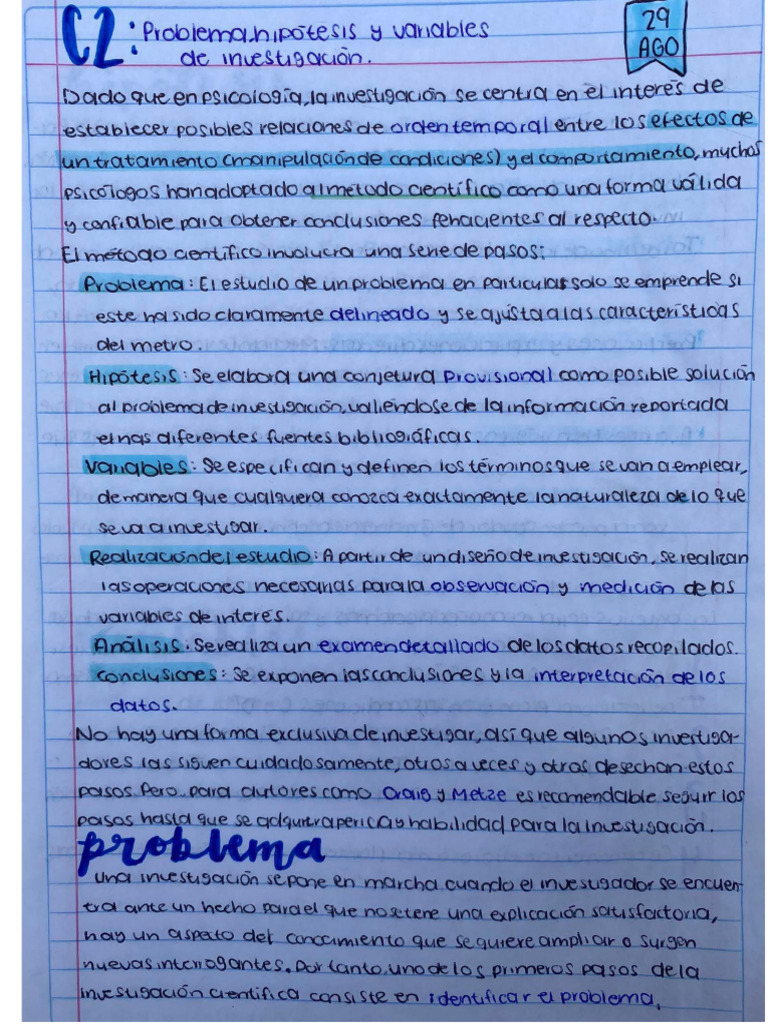 C2: Problema, hipótesis y variables
de investigación.
29
AGO
Dado que en psicología, la investigación se centra en el interés de
establecer posibles relaciones de orden temporal entre los efectos de
un tratamiento (manipulación de condiciones) y el comportamiento, muchos
psicólogos han adoptado al método científico como una forma válida
y confiable para obtener conclusiones fehacientes al respecto.
El método científico involucra una serie de pasos:
Problema: El estudio de un problema en particular solo se emprende si
este ha sido claramente delineado y se ajusta a las características
del metro.
Hipótesis: Se elabora una conjetura provisional como posible solución
al problema de investigación, valiéndose de la información reportada
en las diferentes fuentes bibliográficas.
Variables: Se especifican y definen los términos que se van a emplear,
de manera que cualquiera conozca exactamente la naturaleza de lo que
se va a investigar.
Realización del estudio: A partir de un diseño de investigación, se realizan
las operaciones necesarias para la observación y medición de las
variables de interés.
Análisis: Se realiza un examen detallado de los datos recopilados.
Conclusiones: Se exponen las conclusiones y la interpretación de los
datos.
No hay una forma exclusiva de investigar, así que algunos investiga-
dores las siguen cuidadosamente, otros a veces y otros desechan estos
pasos. Pero para autores como Craig y Metze es recomendable seguir los
pasos hasta que se adquiera pericia y habilidad para la investigación.
problema
Una investigación se pone en marcha cuando el investigador se encuen-
tra ante un hecho para el que no se tiene una explicación satisfactoria,
hay un aspecto del conocimiento que se quiere ampliar o surgen
nuevas interrogantes. Por tanto, uno de los primeros pasos de la
investigación científica consiste en identificar el problema,